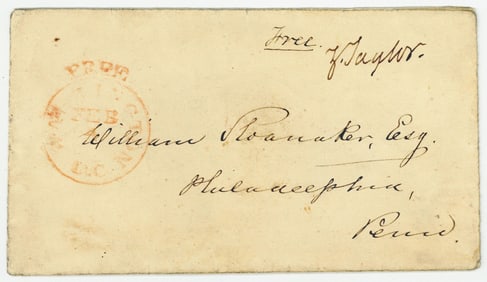 Free.
Z. Taylor.
FREE
WASHINGTON
FEB
D.C.
William Sloanaker, Esq.
Philadelphia,
Penn.